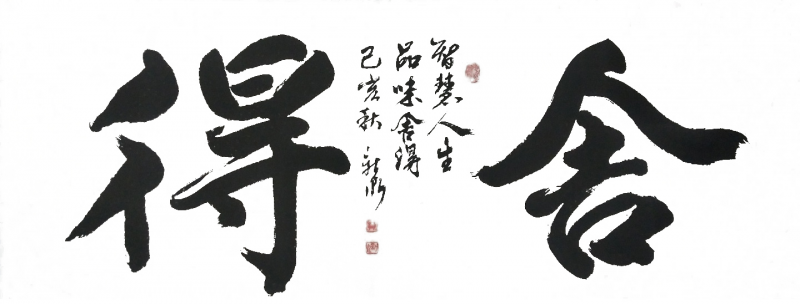 舍得
智慧人生
品味舍得
己亥秋